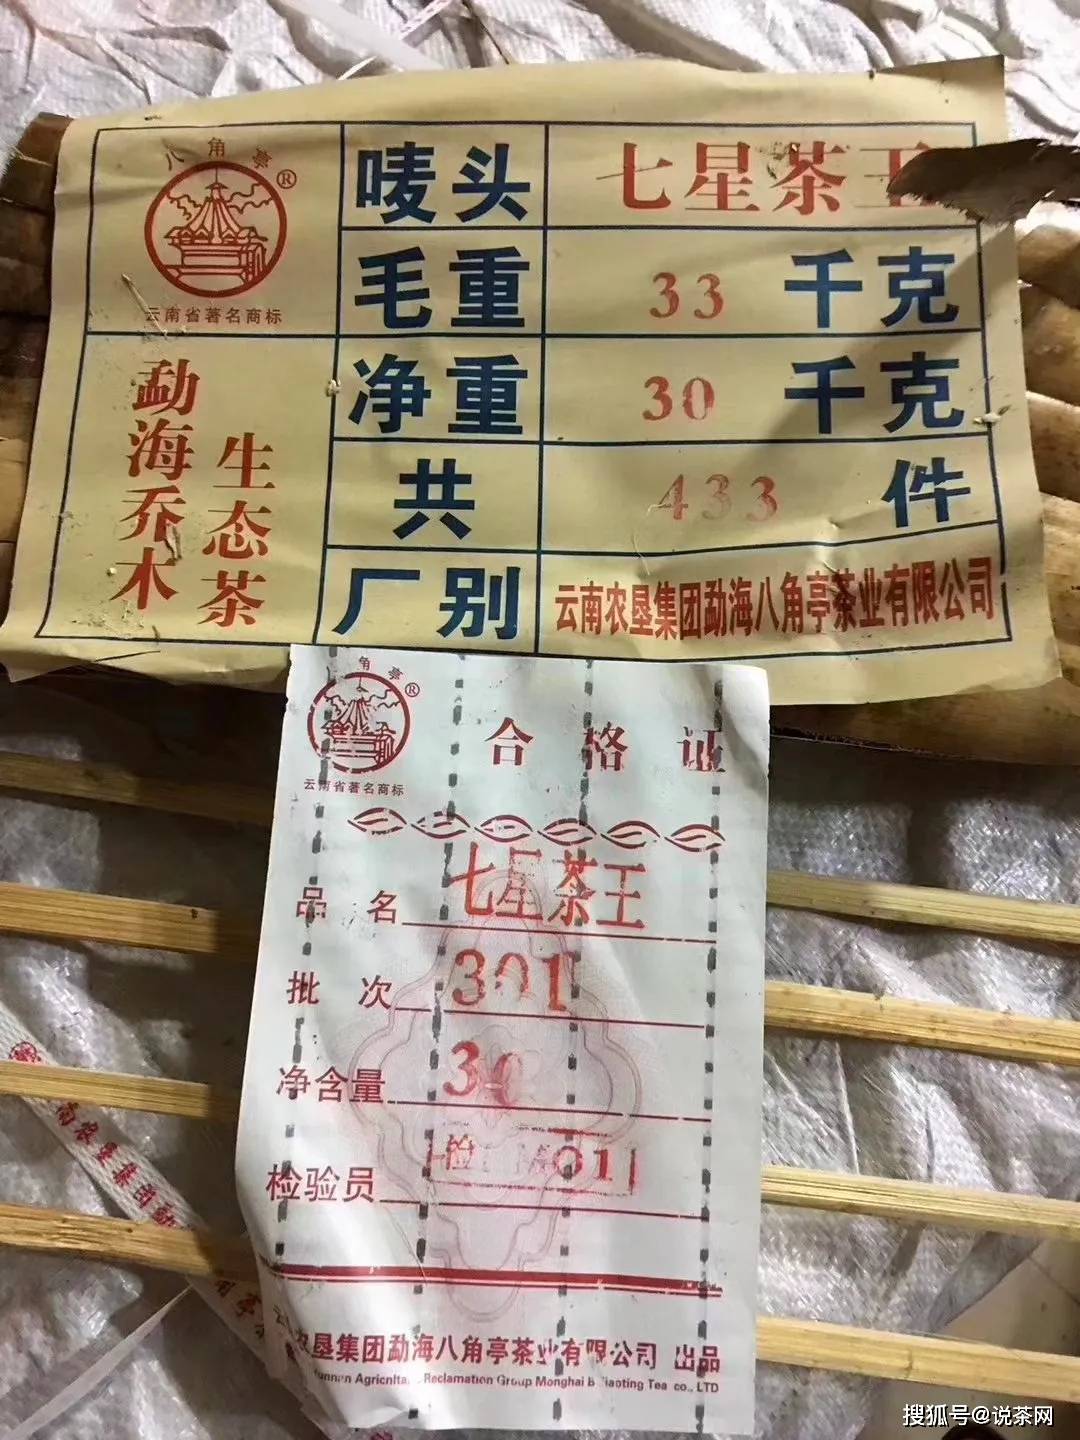 八角亭
®
云南省著名商标
勐海乔木
生态茶
唛头 七星茶王
毛重 33 千克
净重 30 千克
共 433 件
厂别 云南农垦集团勐海八角亭茶业有限公司
角亭
®
云南省著名商标
合格证
品名 七星茶王
批次 301
净含量 30
检验员 检 01
农垦集团勐海八角亭茶业有限公司 出品
Reclamation Group Monghai Tea co., LTD
农垦集团勐
搜狐号@说茶网